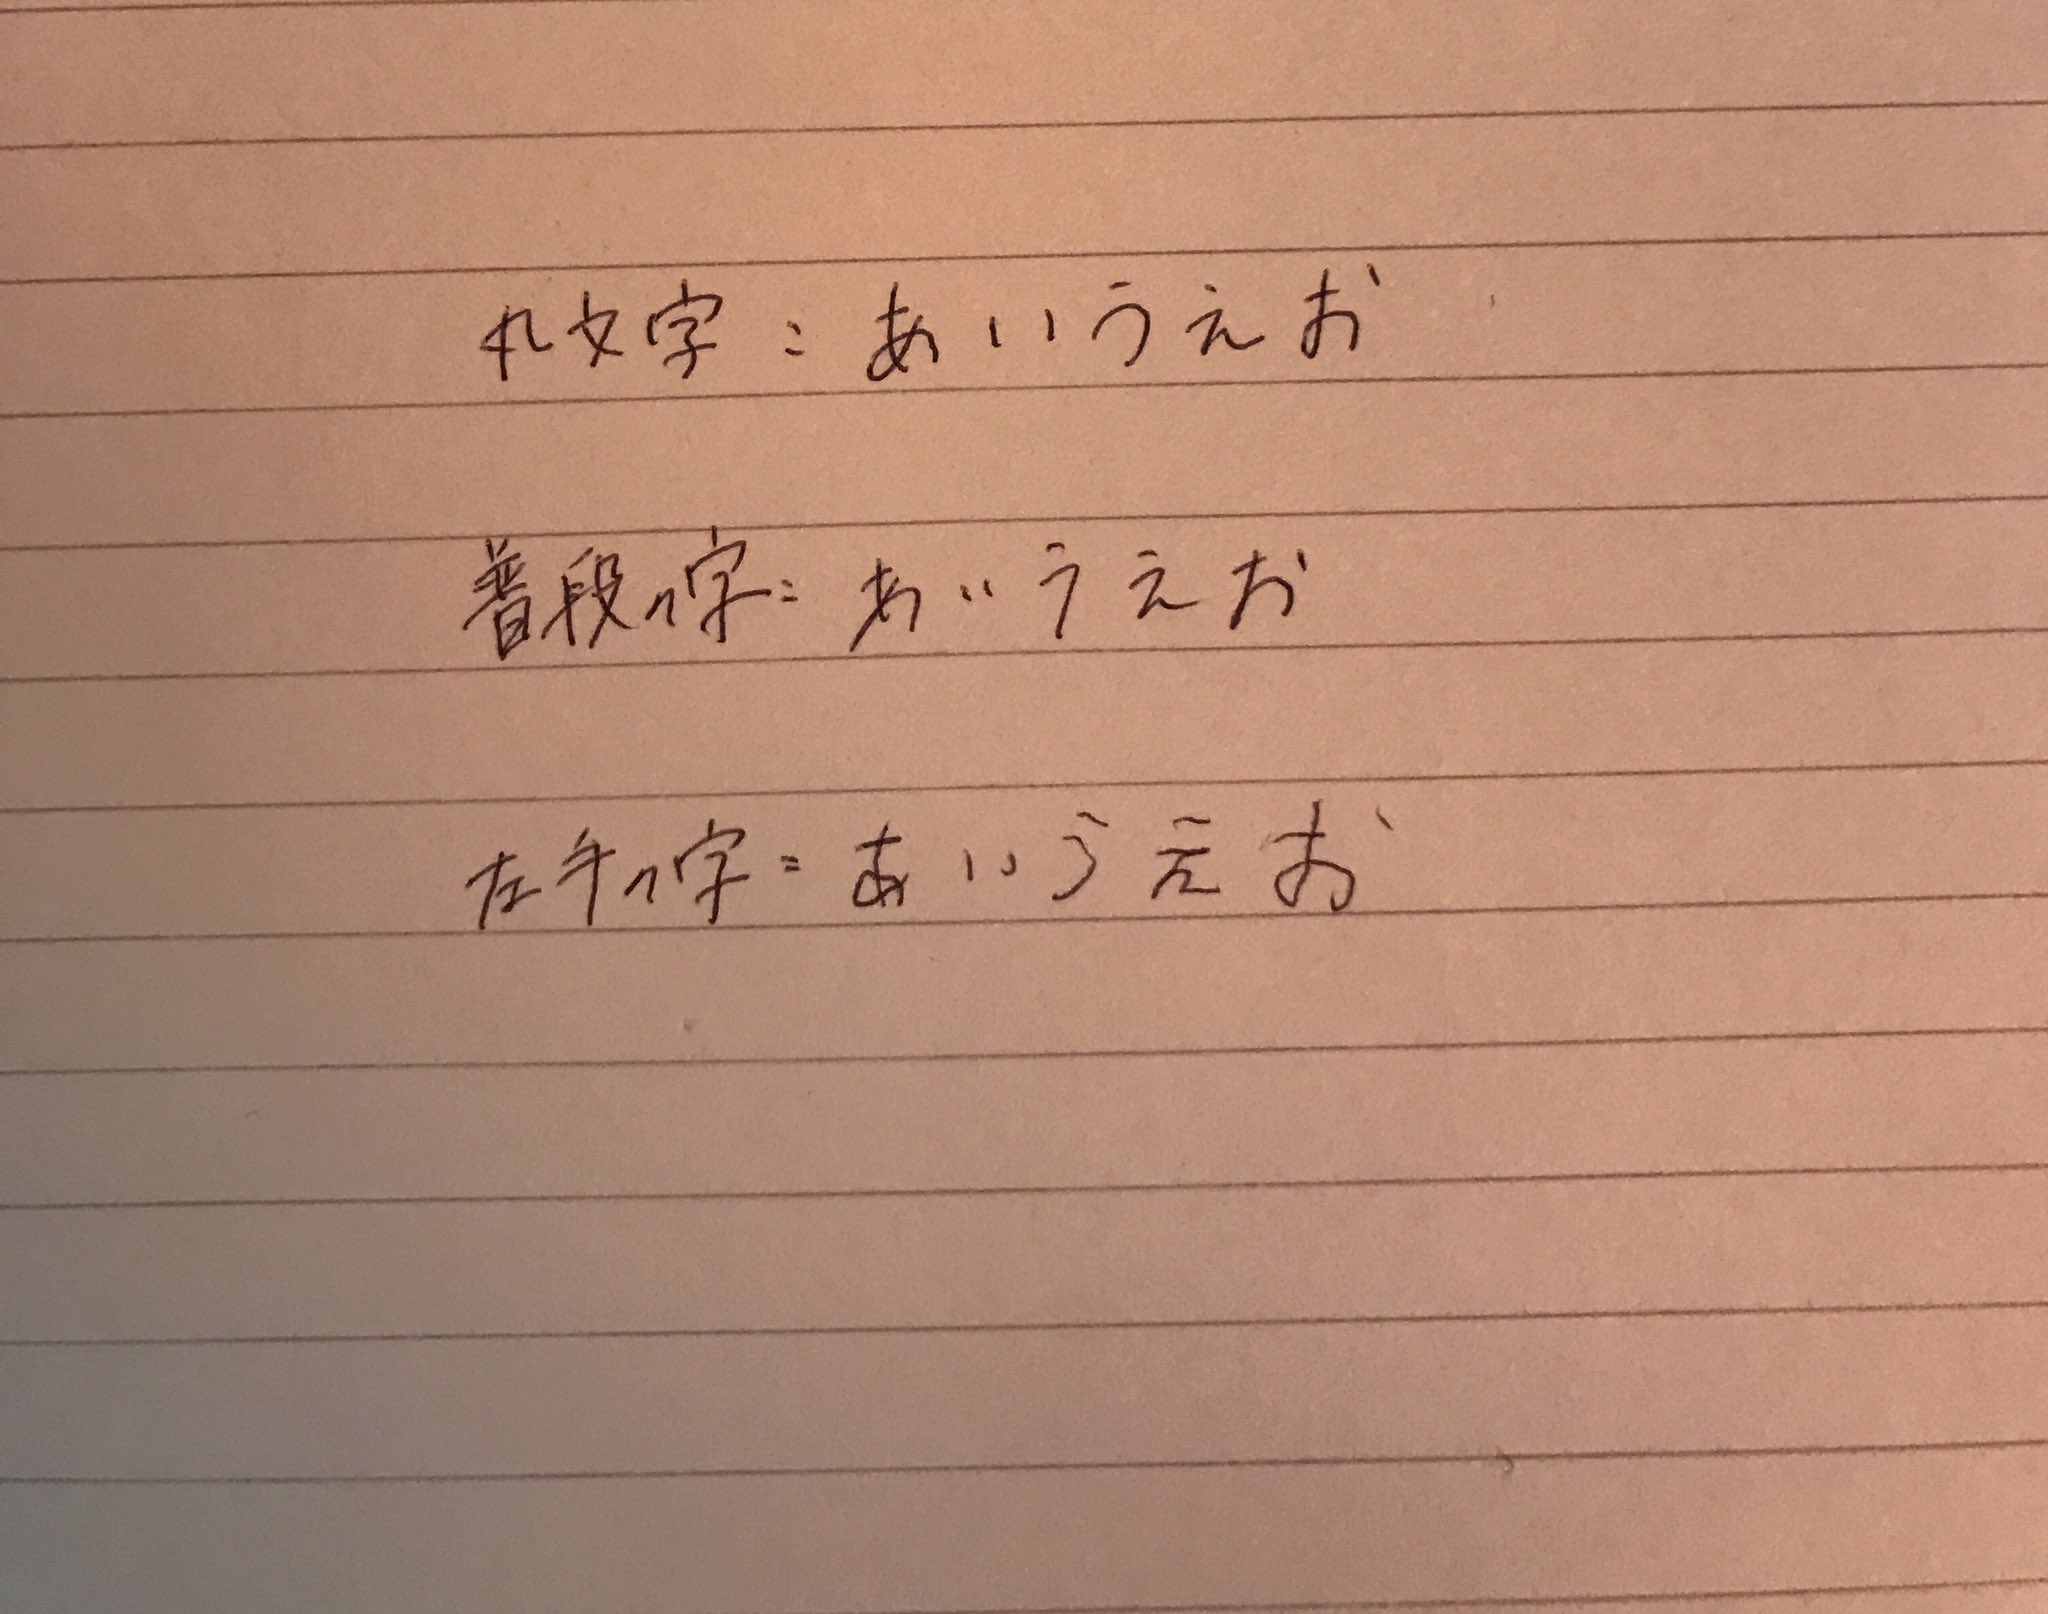 丸文字：あいうえお
普段の字：あいうえお
左手の字：あいうえお